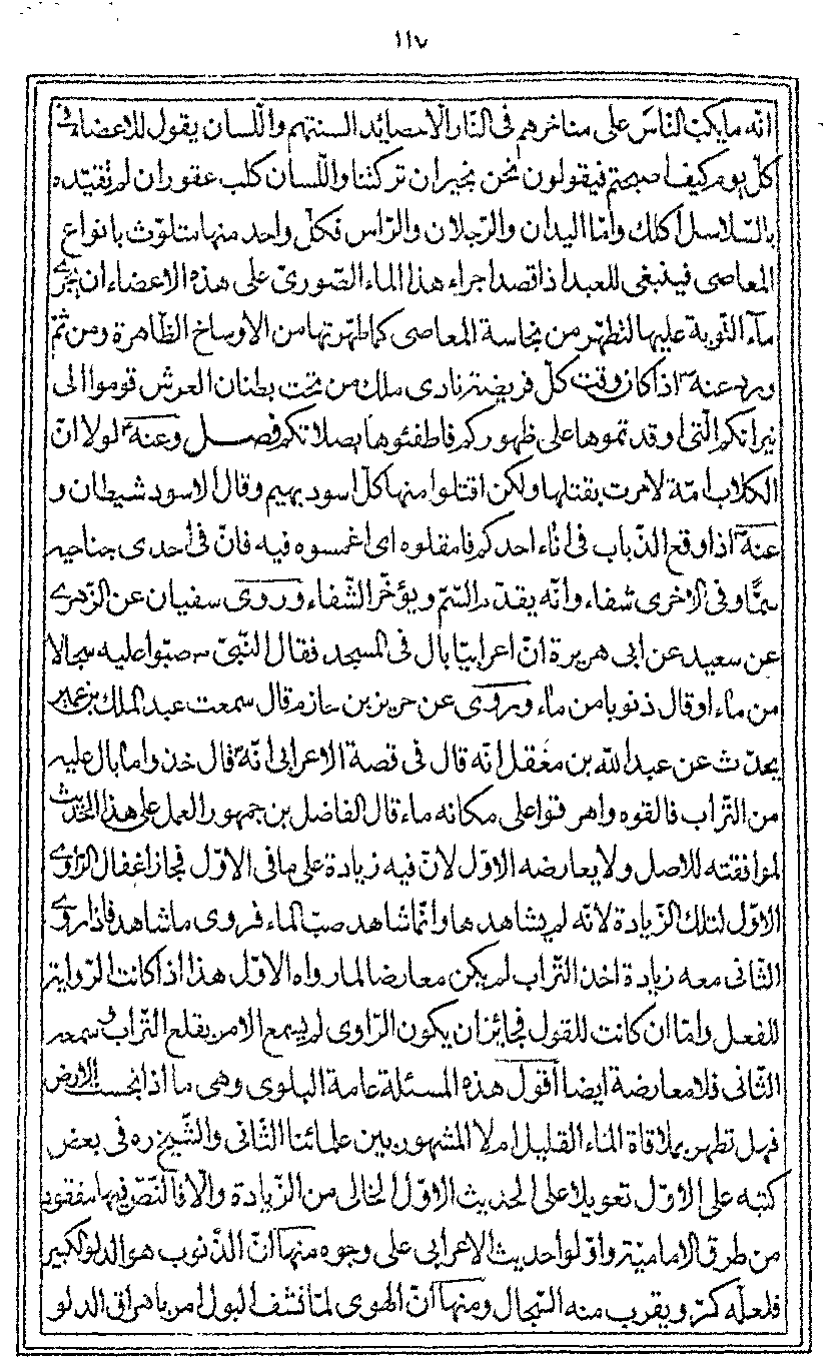 ١١٧
انّه مايكبّ النّاسَ على مناخرهم فى النّار الّا حصايد السنتهم واللّسان يقول للاعضاء فى
كلّ يوم كيف اصبحتم فيقولون نحن بخير ان تركتنا واللّسان كلب عقور ان لم تقيّده
بالسّلاسل اكلك وامّا اليدان والرّجلان والرّاس فكلّ واحد منها متلوّث بانواع
المعاصى فينبغى للعبد اذا قصد اجراء هذا الماء الصّورىّ على هذه الاعضاء ان يجرى
مآء التّوبة عليها لتطهّر من نجاسة المعاصى كما طهّرتها من الاوساخ الظّاهرة ومن ثمّ
ورد عنه ص اذا كان وقت كلّ فريضة نادى ملك من تحت بطنان العرش قوموا الى
نيرانكم الّتى اوقدتموها على ظهوركم فاطفئوها بصلاتكم فصل وعنه ص لولا انّ
الكلاب امّة لامرت بقتلها ولكن اقتلوا منها كلّ اسود بهيم وقال الاسود شيطان و
عنه ص اذا وقع الذّباب فى اناء احدكم فامقلوه اى اغمسوه فيه فانّ فى احدى جناحيه
سمّا وفى الاخرى شفاء وانّه يقدّم السّم ويؤخّر الشّفاء وروى سفيان عن الزّهرى
عن سعيد عن ابى هريرة انّ اعرابيّا بال فى المسجد فقال النّبىّ ص صبّوا عليه سجالا
من ماء او قال ذنوبا من ماء وروى عن حريز بن حازم قال سمعت عبد الملك بن عمير
يحدّث عن عبد اللّه بن معقل انّه قال فى قصة الاعرابى انّه ص قال خذوا ما بال عليه
من التّراب فالقوه واهرقوا على مكانه ماء قال الفاضل بن جمهور العمل على هذا الحديث
لموافقته للاصل ولا يعارضه الاوّل لانّ فيه زيادة على ما فى الاوّل فجاز اغفال الرّاوى
الاوّل لتلك الزّيادة لانّه لم يشاهدها وانّما شاهد صبّ الماء فروى ما شاهد فاذا روى
الثّانى معه زيادة اخذ التّراب لم يكن معارضا لما رواه الاوّل هذا اذا كانت الرّواية
للفعل وامّا ان كانت للقول فجائز ان يكون الرّاوى لم يسمع الامر بقلع التّراب وسمعه
الثّانى فلا معارضة ايضا اقول هذه المسئلة عامة البلوى وهى ما اذا نجست الارض
فهل تطهر بملاقاة الماء القليل ام لا المشهور بين علمائنا الثّانى والشّيخ ره فى بعض
كتبه على الاوّل تعويلا على الحديث الاوّل الخالى من الزّيادة والّا فالنّصّ فيها مفقود
من طرق الاماميّة واوّلوا حديث الاعرابى على وجوه منها انّ الذّنوب هو الدلو الكبير
فلعلّه كرّ ويقرب منه السّجال ومنها انّ الهوى لمّا نشف البول امر باهراق الدلو